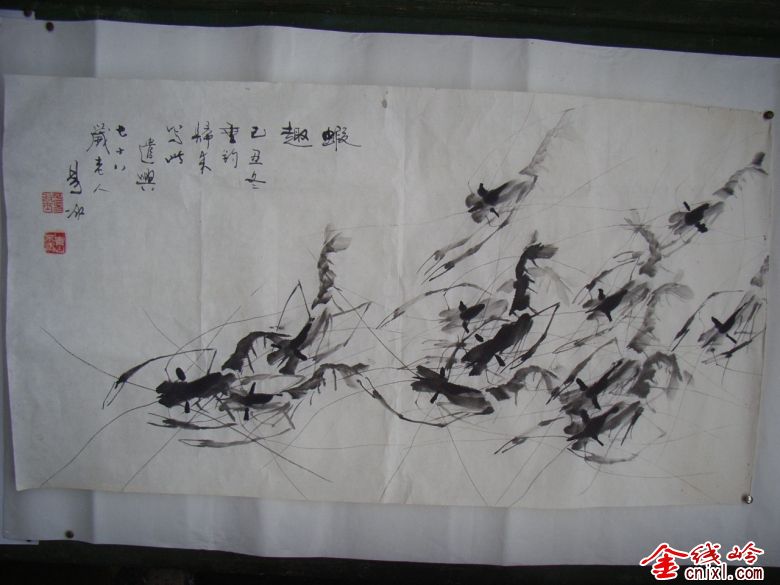 蝦
趣
己丑冬
重約
歸來
写此
遣興
七十八
歲老人
金线岭
cnjxl.com